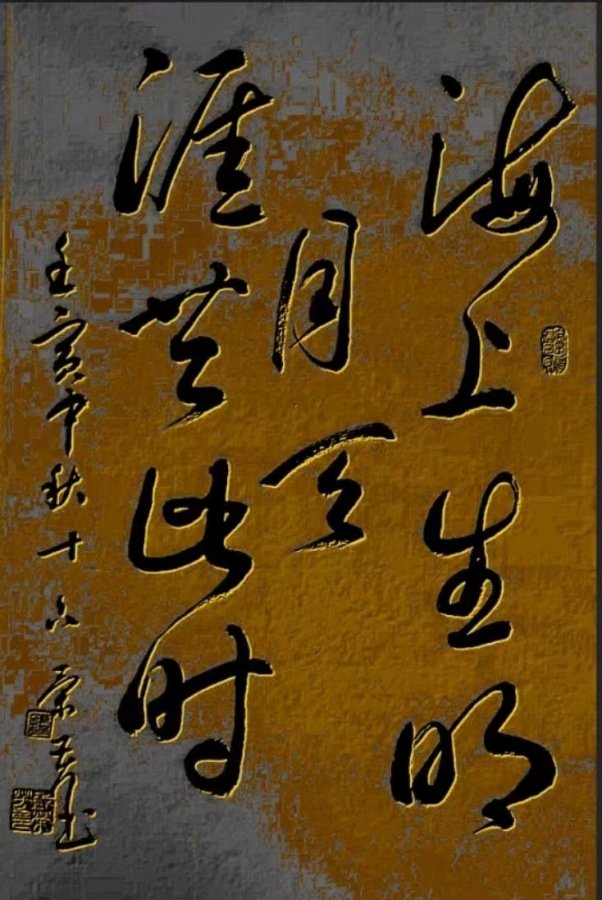 海上生明
月天
涯共此时
壬寅中秋十六